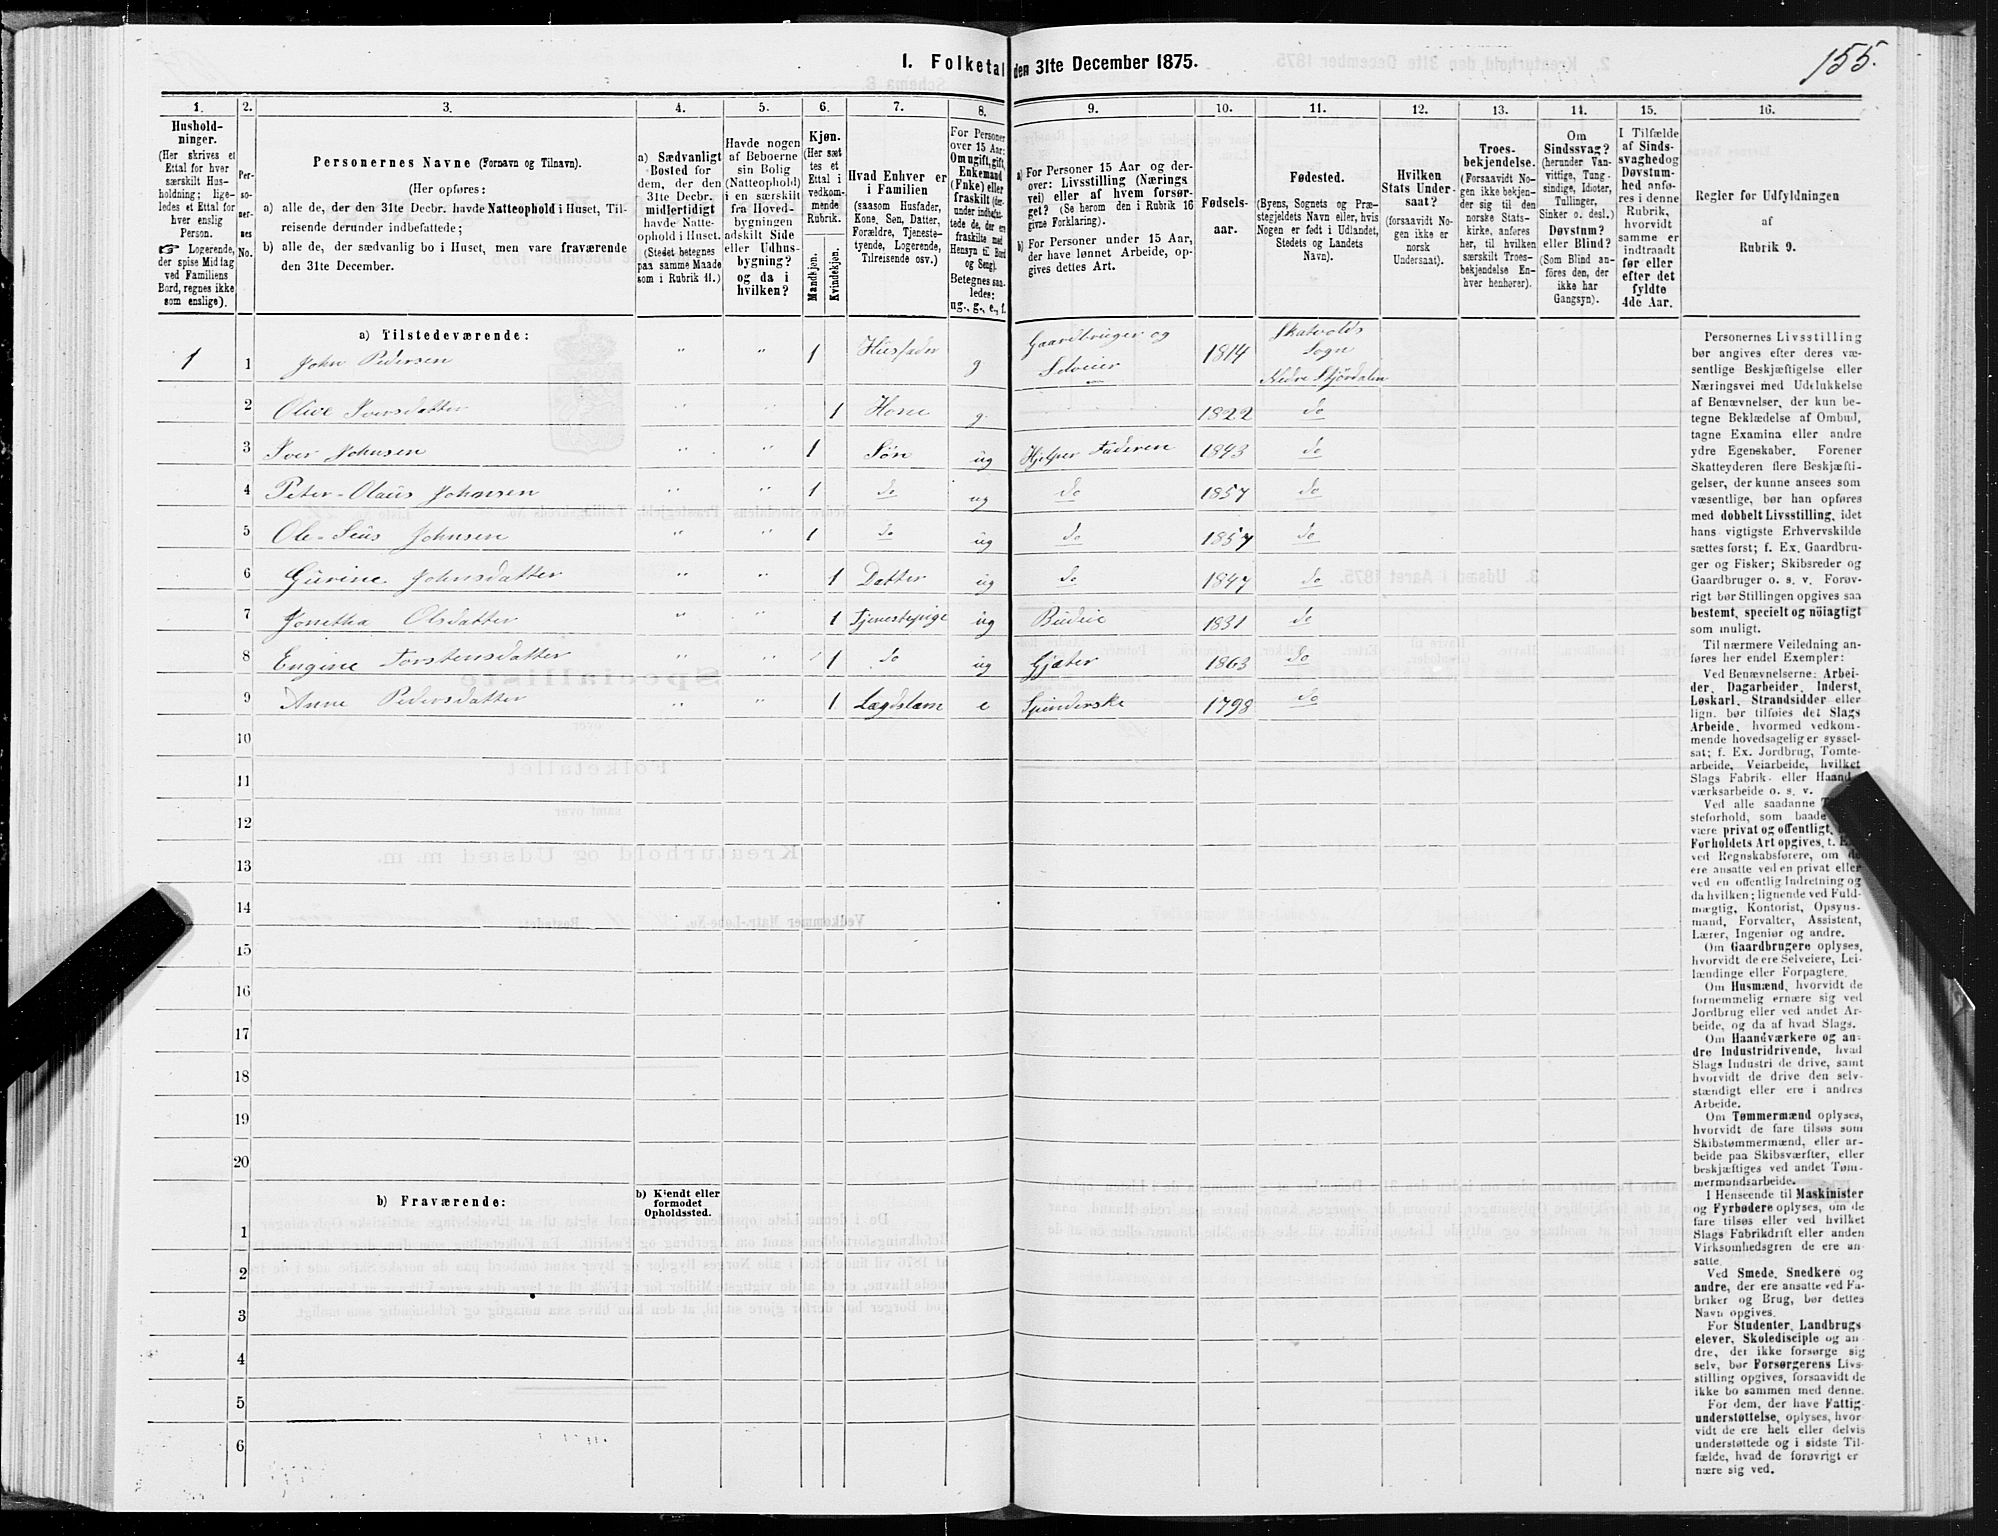 155.
I. Folketal den 31te December 1875.
1. 2. 3. 4. 5. 6. 7. 8. 9. 10. 11. 12. 13. 14. 15. 16.
Hushold-
ninger.
(Her skrives et
Ettal for hver
særskilt Hus-
holdning; lige-
ledes et Ettal for
hver enslig
Person.
☞ Logerende,
der spise Middag
ved Familiens
Bord, regnes ikke
som enslige).
Per-
so-
ner-
nes
No.
Personernes Navne (Fornavn og Tilnavn).
(Her opføres:
a) alle de, der den 31te Decbr. havde Natteophold i Huset, Til-
reisende derunder indbefattede;
b) alle de, der sædvanlig bo i Huset, men vare fraværende
den 31te December.
a) Sædvanligt
Bosted for
dem, der den
31te Decbr.
midlertidigt
havde Natte-
ophold i Huset.
(Stedet betegnes
paa samme Maade
som i Rubrik 11.)
Havde nogen
af Beboerne
sin Bolig
(Natteophold)
i en særskilt
fra Hoved-
bygningen
adskilt Side
eller Udhus-
bygning?
og da i
hvilken?
Kjøn.
(Her sæt
tes et
Ettal i
vedkom-
mende
Rubrik.
Mandkjøn.
Kvindekjøn.
Hvad Enhver er
i Familien
(saasom Husfader,
Kone, Søn, Datter,
Forældre, Tjeneste-
tyende, Logerende,
Tilreisende osv.)
For Personer
over 15 Aar:
Om ugift, gift,
Enkemand
(Enke) eller
fraskilt (der-
under indbefat-
tede de, der ere
fraskilte med
Hensyn til Bord
og Seng).
Betegnes saa-
ledes:
ug., g., e., f.
a) For Personer 15 Aar og der-
over: Livsstilling (Nærings
vei) eller af hvem forsør-
get? (Se herom den i Rubrik 16
givne Forklaring).
b) For Personer under 15 Aar,
der have lønnet Arbeide, op-
gives dettes Art.
Fødsels-
aar.
Fødested.
(Byens, Sognets og Præ-
stegjeldets Navn eller, hvis
Nogen er født i Udlandet,
Stedets og Landets
Navn).
Hvilken
Stats Under-
saat?
(forsaavidt No-
gen ikke er
norsk
Undersaat).
Troes-
bekjendelse.
(Forsaavidt No-
gen ikke bekjen-
der sig til den
norske Stats-
kirke, anføres
her, til hvilken
særskilt Troes-
bekjendelse En-
hver henhører).
Om
Sindssvag?
(herunder Van-
vittige, Tung-
sindige, Idioter,
Tullinger,
Sinker o. desl.)
Døvstum?
eller Blind?
(Som Blind an-
føres den, der
ikke har
Gangsyn).
I Tilfælde
af Sinds-
svaghed og
Døvstum-
hed anfø-
res i denne
Rubrik,
hvorvidt
samme er
indtraadt
før eller
efter det
fyldte
4de Aar.
Regler for Udfyldningen
af
Rubrik 9.
a) Tilstedeværende:
1 1 John Pedersen " " 1 Husfader g Gaardbruger og Selveier 1814 Skatvolds Sogn Nedre Stjørdalen
2 Olive Iversdatter " " 1 Kone g. 1822 do
3 Iver Johnsen " " 1 Søn ug Hjelper Faderen 1843 do
4 Peter-Olaus Johnsen " " 1 do ug do 1857 do
5 Ole-Sius Johnsen " " 1 do ug do 1857 do
6 Gurine Johnsdatter " " 1 Datter ug do 1847 do
7 Jonetha Olsdatter " " 1 Tjenestepige ug Budeie 1831 do
8 Engine Torstensdatter " " 1 do ug Gjæter 1863 do
9 Anne Pedersdatter " " 1 Lægdslem e Spinderske 1798 do
10
11
12
13
14
15
16
17
18
19
20
b) Fraværende:
b) Kjendt eller
formodet
Opholdssted.
1
2
3
4
5
6
Personernes Livsstilling
bør angives efter deres væ-
sentlige Beskjæftigelse eller
Næringsvei med Udelukkelse
af Benævnelser, der kun be-
tegne Beklædelse af Ombud,
tagne Examina eller andre
ydre Egenskaber. Forener
Skatteyderen flere Beskjæfti-
gelser, der kunne ansees som
væsentlige, bør han opføres
med dobbelt Livsstilling, idet
hans vigtigste Erhvervskilde
sættes først; f. Ex. Gaardbru-
ger og Fisker; Skibsreder og
Gaardbruger o. s. v. Forøv-
rigt bør Stillingen opgives saa
bestemt, specielt og nöiagtigt
som muligt.
Til nærmere Veiledning an-
føres her endel Exempler:
Ved Benævnelserne: Arbei-
der, Dagarbeider, Inderst,
Løskarl, Strandsidder eller
lign. bør tilføies det Slags
Arbeide, hvormed vedkom-
mende hovedsagelig er syssel-
sat; f. Ex. Jordbrug, Tomte-
arbeide, Veiarbeide, hvilket
Slags Fabrik- eller Haand-
værksarbeide o. s. v.
Ved alle saadanne
steforhold, som baade
være privat og offentligt,
Forholdets Art opgives, t.
ved Regnskabsførere, om de
ere ansatte ved en privat eller
ved en offentlig Indretning og
da hvilken; lignende ved Fuld-
mægtig, Kontorist, Opsyns-
mand, Forvalter, Assistent,
Lærer, Ingeniør og andre.
Om Gaardbrugere oplyses,
hvorvidt de ere Selveiere, Lei-
lændinge eller Forpagtere.
Om Husmænd, hvorvidt de
fornemmelig ernære sig ved
Jordbrug eller ved andet Ar-
beide, og da af hvad Slags.
Om Haandværkere og an-
dre Industridrivende, hvad
Slags Industri de drive, samt
hvorvidt de drive den selv-
stændigt eller ere i andres
Arbeide.
Om Tømmermænd oplyses,
hvorvidt de fare tilsøs som
Skibstømmermænd, eller ar-
beide paa Skibsværfter, eller
beskjæftiges ved andet Tøm-
mermandsarbeide.
I Henseende til Maskinister
og Fyrbødere oplyses, om de
fare tilsøs eller ved hvilket
Slags Fabrikdrift eller anden
Virksomhedsgren de ere an-
satte.
Ved Smede, Snedkere og
andre, der ere ansatte ved Fa-
briker og Brug, bør dettes
Navn opgives.
For Studenter, Landbrugs
elever, Skoledisciple og an-
dre, der ikke forsørge sig
selv, bør Forsørgerens Livs-
stilling opgives, forsaavidt de
ikke bo sammen med denne.
For dem, der have Fattig-
understøttelse, oplyses, hvor-
vidt de ere helt eller delvis
understøttede og i sidste Til-
fælde, hvad de forøvrigt er
nære sig ved.